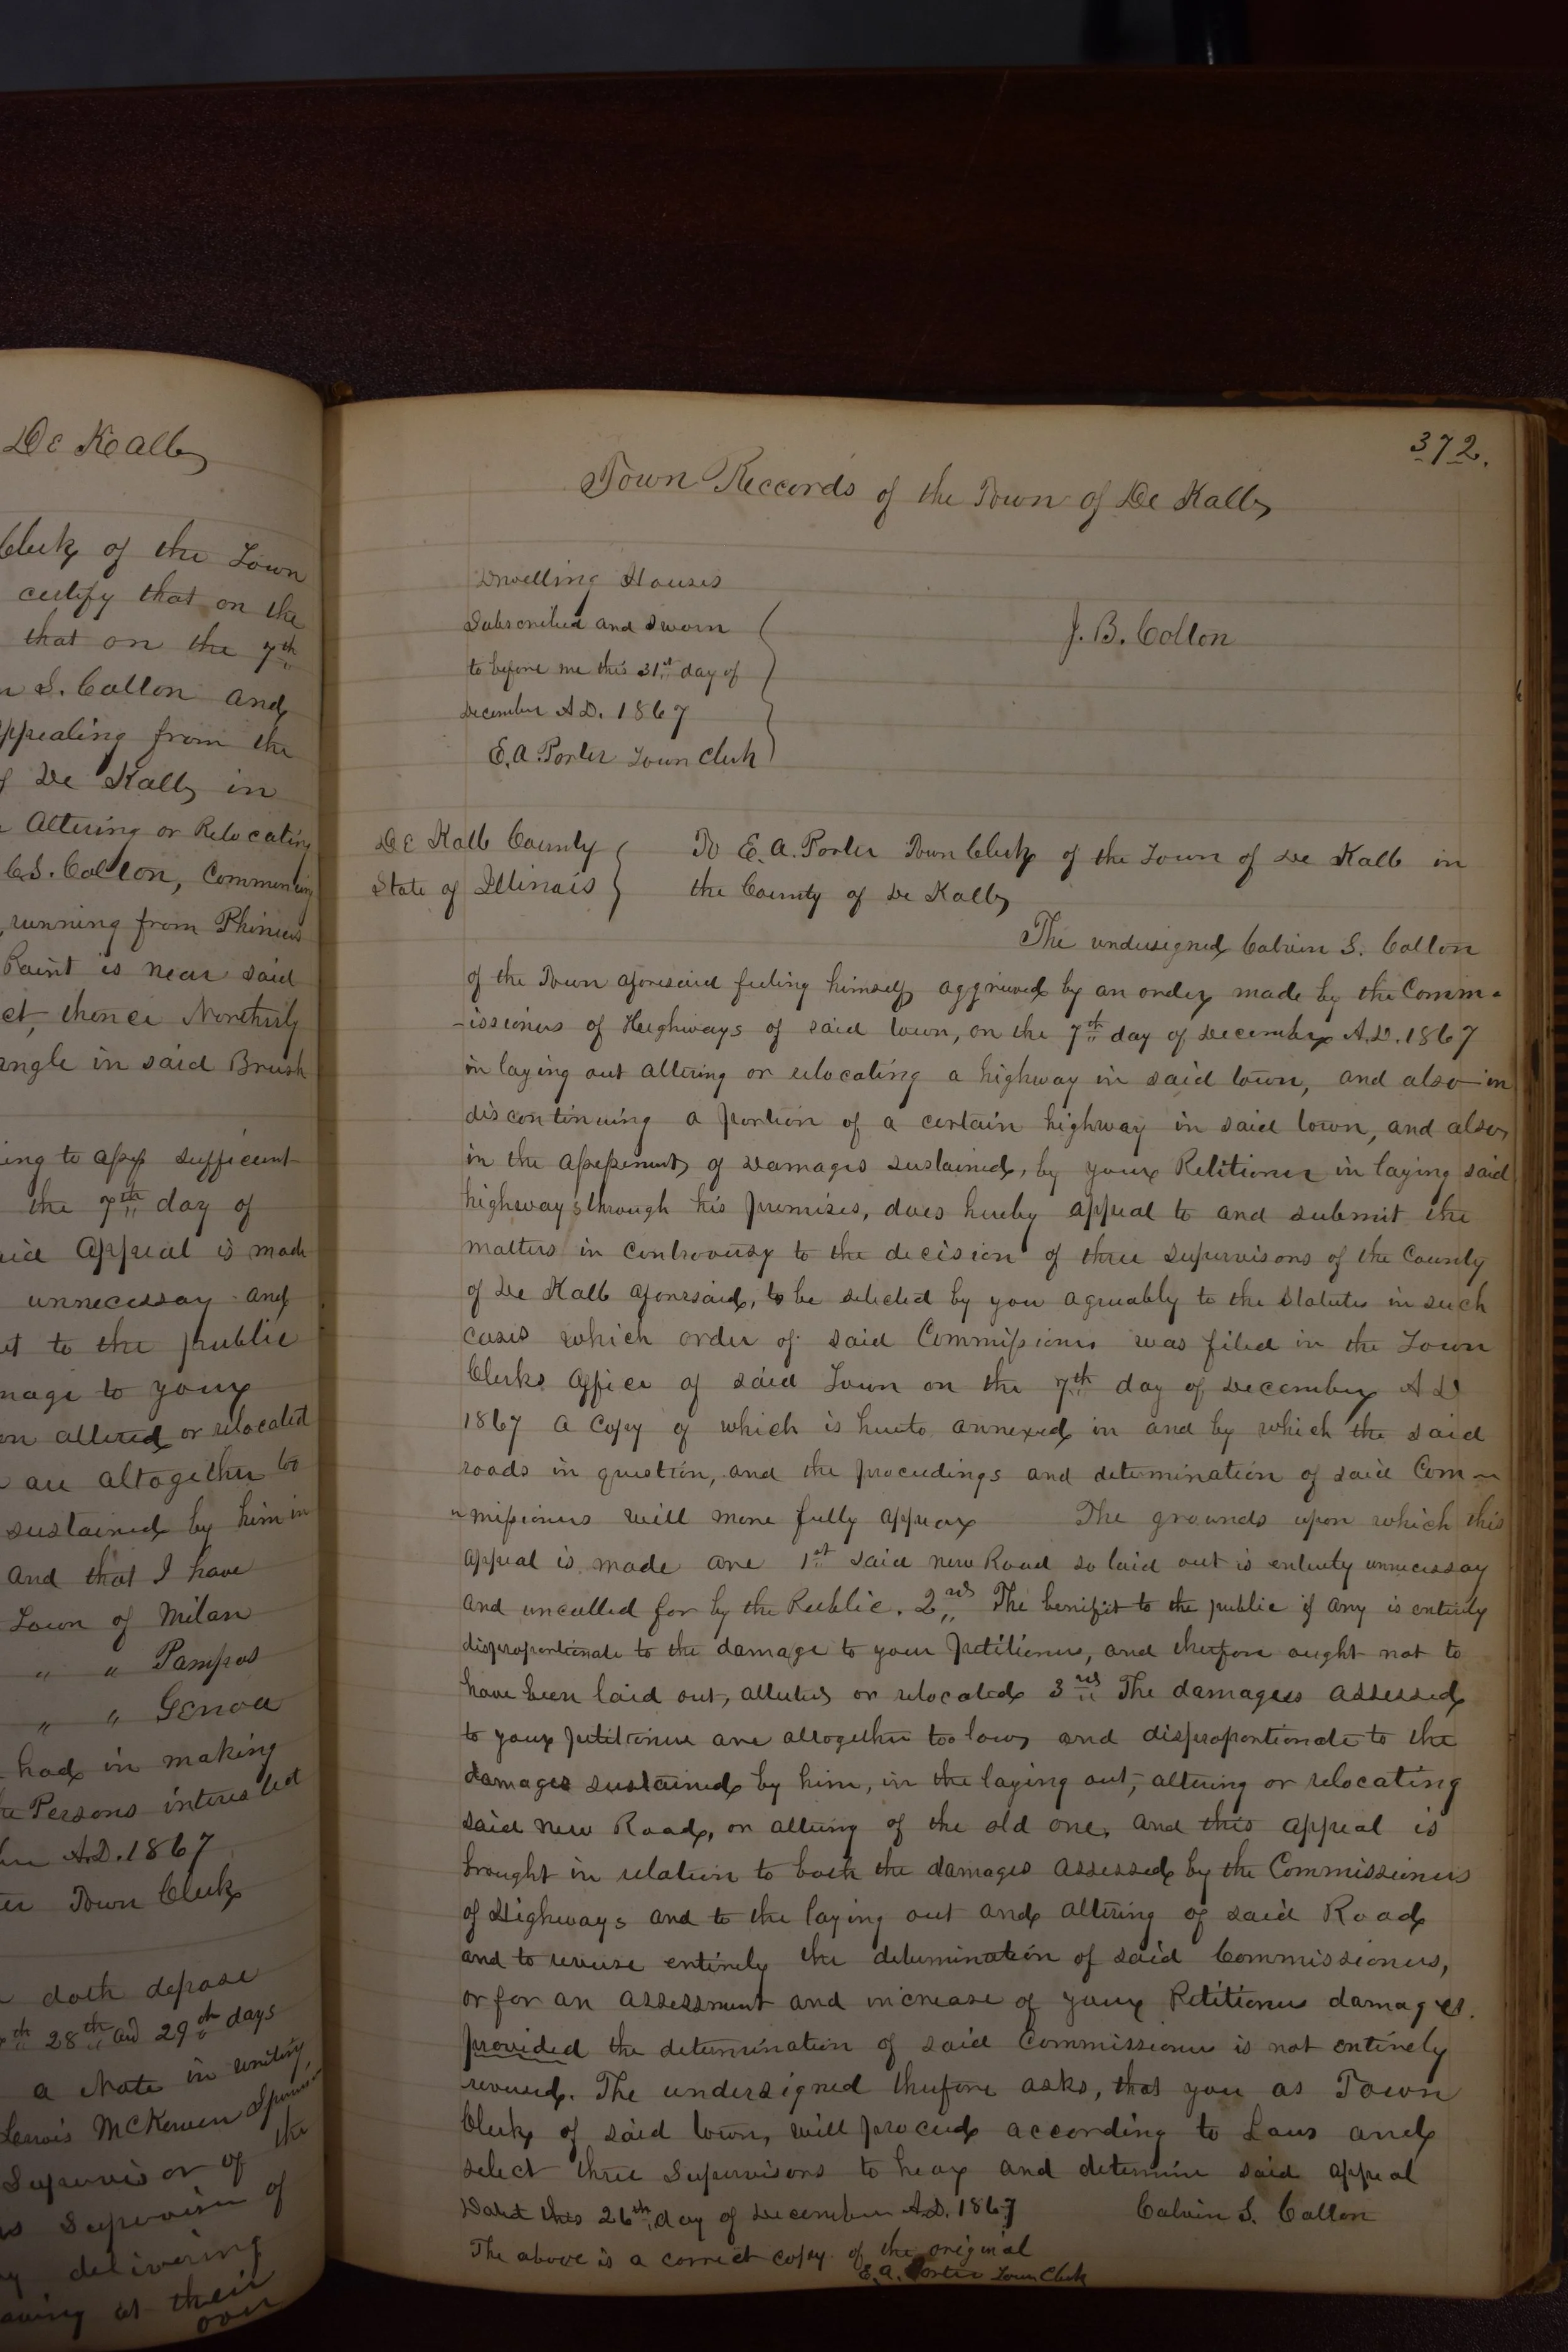 De Kalb
Clerk of the Town
certify that on the
that on the 7th
n S. Colton and
appealing from the
of De Kalb in
Altering or Relocating
C.S. Colton, Commencing
running from Phineas
Point is near said
ct, thence Northerly
angle in said Brush
ing to assess sufficient
the 7th day of
aid Appeal is made
unnecessay and
et to the public
mage to your
on altered or relocated
are altogether to
sustained by him in
and that I have
Town of Milan
" " Pampas
" " Genoa
had in making
the Persons interested
A.D. 1867
Town Clerk
doth depose
th 28th and 29th days
a Note in writing,
Lewis McKewen
Supervisor of the
as Supervisor of
delivering
at their
over
372.
Town Reccords of the Town of De Kalb
Dwelling Houses
Subscribed and Sworn
to before me this 31st day of
December A.D. 1867
E.A. Porter Town Clerk
J. B. Colton
De Kalb County
State of Illinois
To E.A. Porter Town Clerk of the Town of De Kalb in
the County of De Kalb
The undersigned Calvin S. Colton
of the Town aforesaid feeling himself aggrieved by an order made by the Comm-
-issioners of Heighways of said town, on the 7th day of December A.D. 1867
in laying out altering or relocating a highway in said town, and also in
discontinuing a portion of a certain highway in said town, and also
in the assessment of Damages sustained, by your Petitioner in laying said
highways through his premises, does hereby appeal to and submit the
matters in controversy to the decision of three supervisors of the County
of De Kalb aforesaid, to be selected by you agreeably to the Statutes in such
cases which order of said Commissioners was filed in the Town
Clerks office of said Town on the 7th day of December A D
1867 a Copy of which is hereto annexed in and by which the said
roads in question, and the proceedings and determination of said Com-
"missioners will more fully appear The grounds upon which this
appeal is made are 1st said new Road so laid out is entirely unnecessay
and uncalled for by the Public. 2nd The benifit to the public if any is entirely
disproportionate to the damage to your petitioner, and therefore ought not to
have been laid out, altered or relocated 3rd The damages assessed
to your petitioner are altogether too low, and disproportionate to the
damages sustained by him, in the laying out, altering or relocating
said new Road, or altering of the old one, and this appeal is
brought in relation to both the damages assessed by the Commissioners
of Highways and to the laying out and altering of said Road
and to reverse entirely the determination of said Commissioners,
or for an assessment and increase of your Petitioners damages.
provided the determination of said Commissioners is not entirely
reversed. The undersigned therefore asks, that you as Town
Clerk of said town, will proceed according to Law and
select three Supervisors to hear and determine said appeal
Dated this 26th day of December A.D. 1867 Calvin S. Colton
The above is a correct copy of the original
E.A. Porter Town Clerk